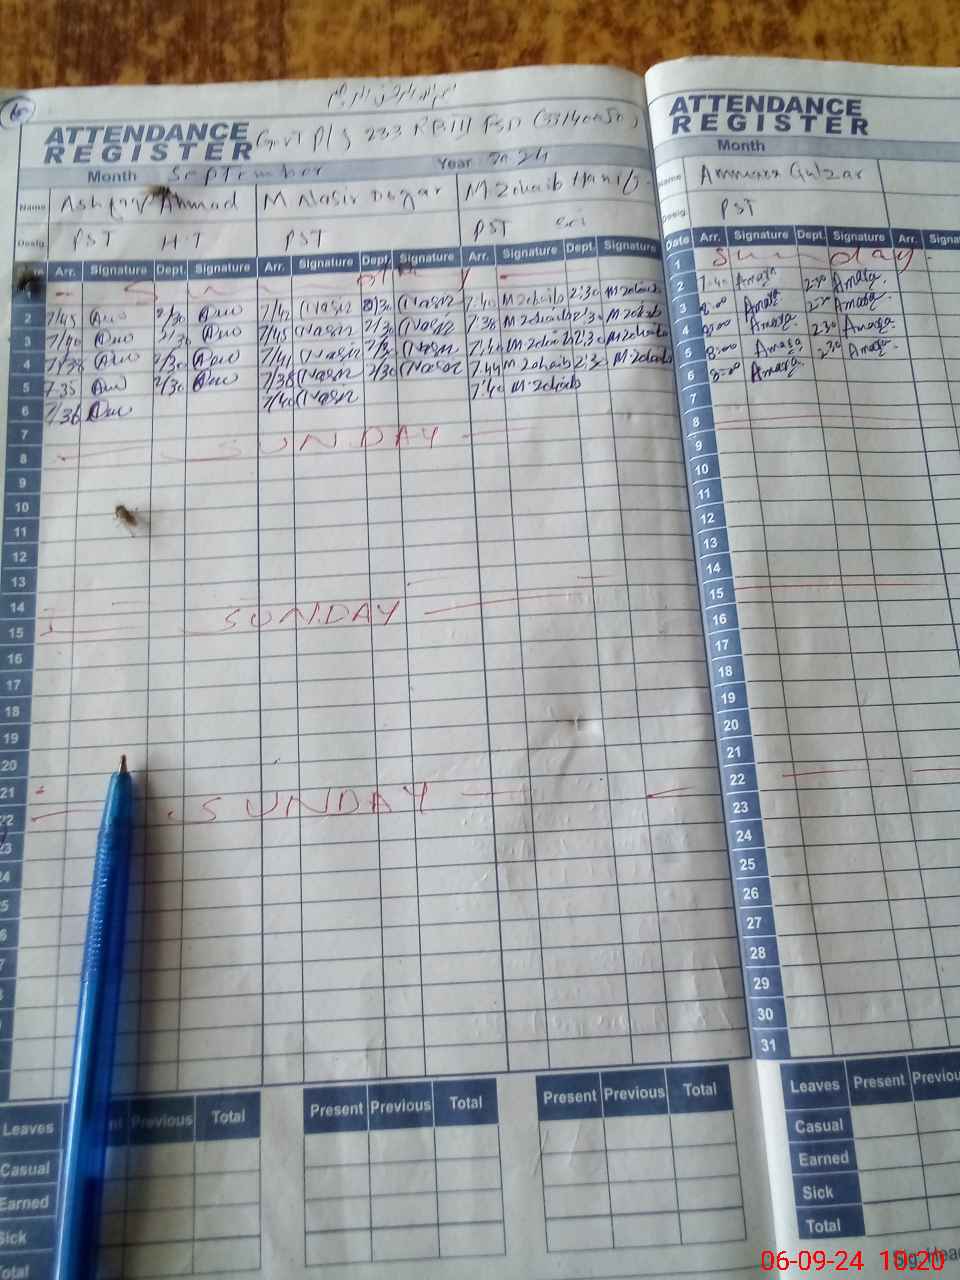 بسم اللہ الرحمن الرحیم
6
ATTENDANCE REGISTER Govt P/S 233 RB III FSD
Month September Year 2024
Name Ashfaq Ahmad M Nasir Dogar M Zohaib Hanif
Desig. PST H.T PST PST
Date Arr. Signature Dept. Signature Arr. Signature Dept. Signature Arr. Signature Dept. Signature
1 Sunday
2 7/45 2/30 7/42 Nasir 2/30 Nasir 7:40 M Zohaib 2:30 M Zohaib
3 7/40 2/30 7/45 Nasir 2/30 Nasir 7:38 M Zohaib 2:30 M Zohaib
4 7/38 2/30 7/41 Nasir 2/30 Nasir 7:40 M Zohaib 2:30 M Zohaib
5 7-35 2/30 7/38 Nasir 2/30 Nasir 7:44 M Zohaib 2:30 M Zohaib
6 7/36 7/40 Nasir 7:40 M Zohaib
7
8 SUNDAY
9
10
11
12
13
14
15 SUNDAY
16
17
18
19
20
21
22 SUNDAY
Leaves Previous Total Present Previous Total Present Previous Total
Casual
Earned
Sick
Total
ATTENDANCE REGISTER
Month
Name Gulzar
Desig. PST
Date Arr. Signature Dept. Signature Arr.
1 Sunday
2 7:40 Amara 2:30 Amara
3 8:00 Amara 2:30 Amara
4 8:00 Amara 2:30 Amara
5 8:00 Amara 2:30 Amara
6 8:00 Amara
7
8
9
10
11
12
13
14
15
16
17
18
19
20
21
22
23
24
25
26
27
28
29
30
31
Leaves Present
Casual
Earned
Sick
Total
06-09-24 10:20